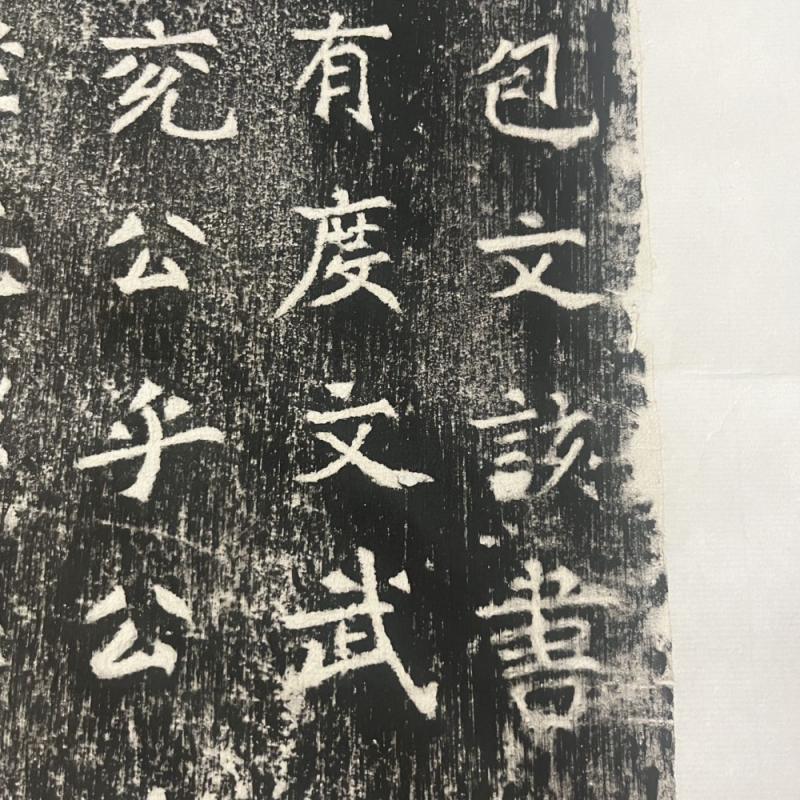 包文該書
有度文武
兖公乎公